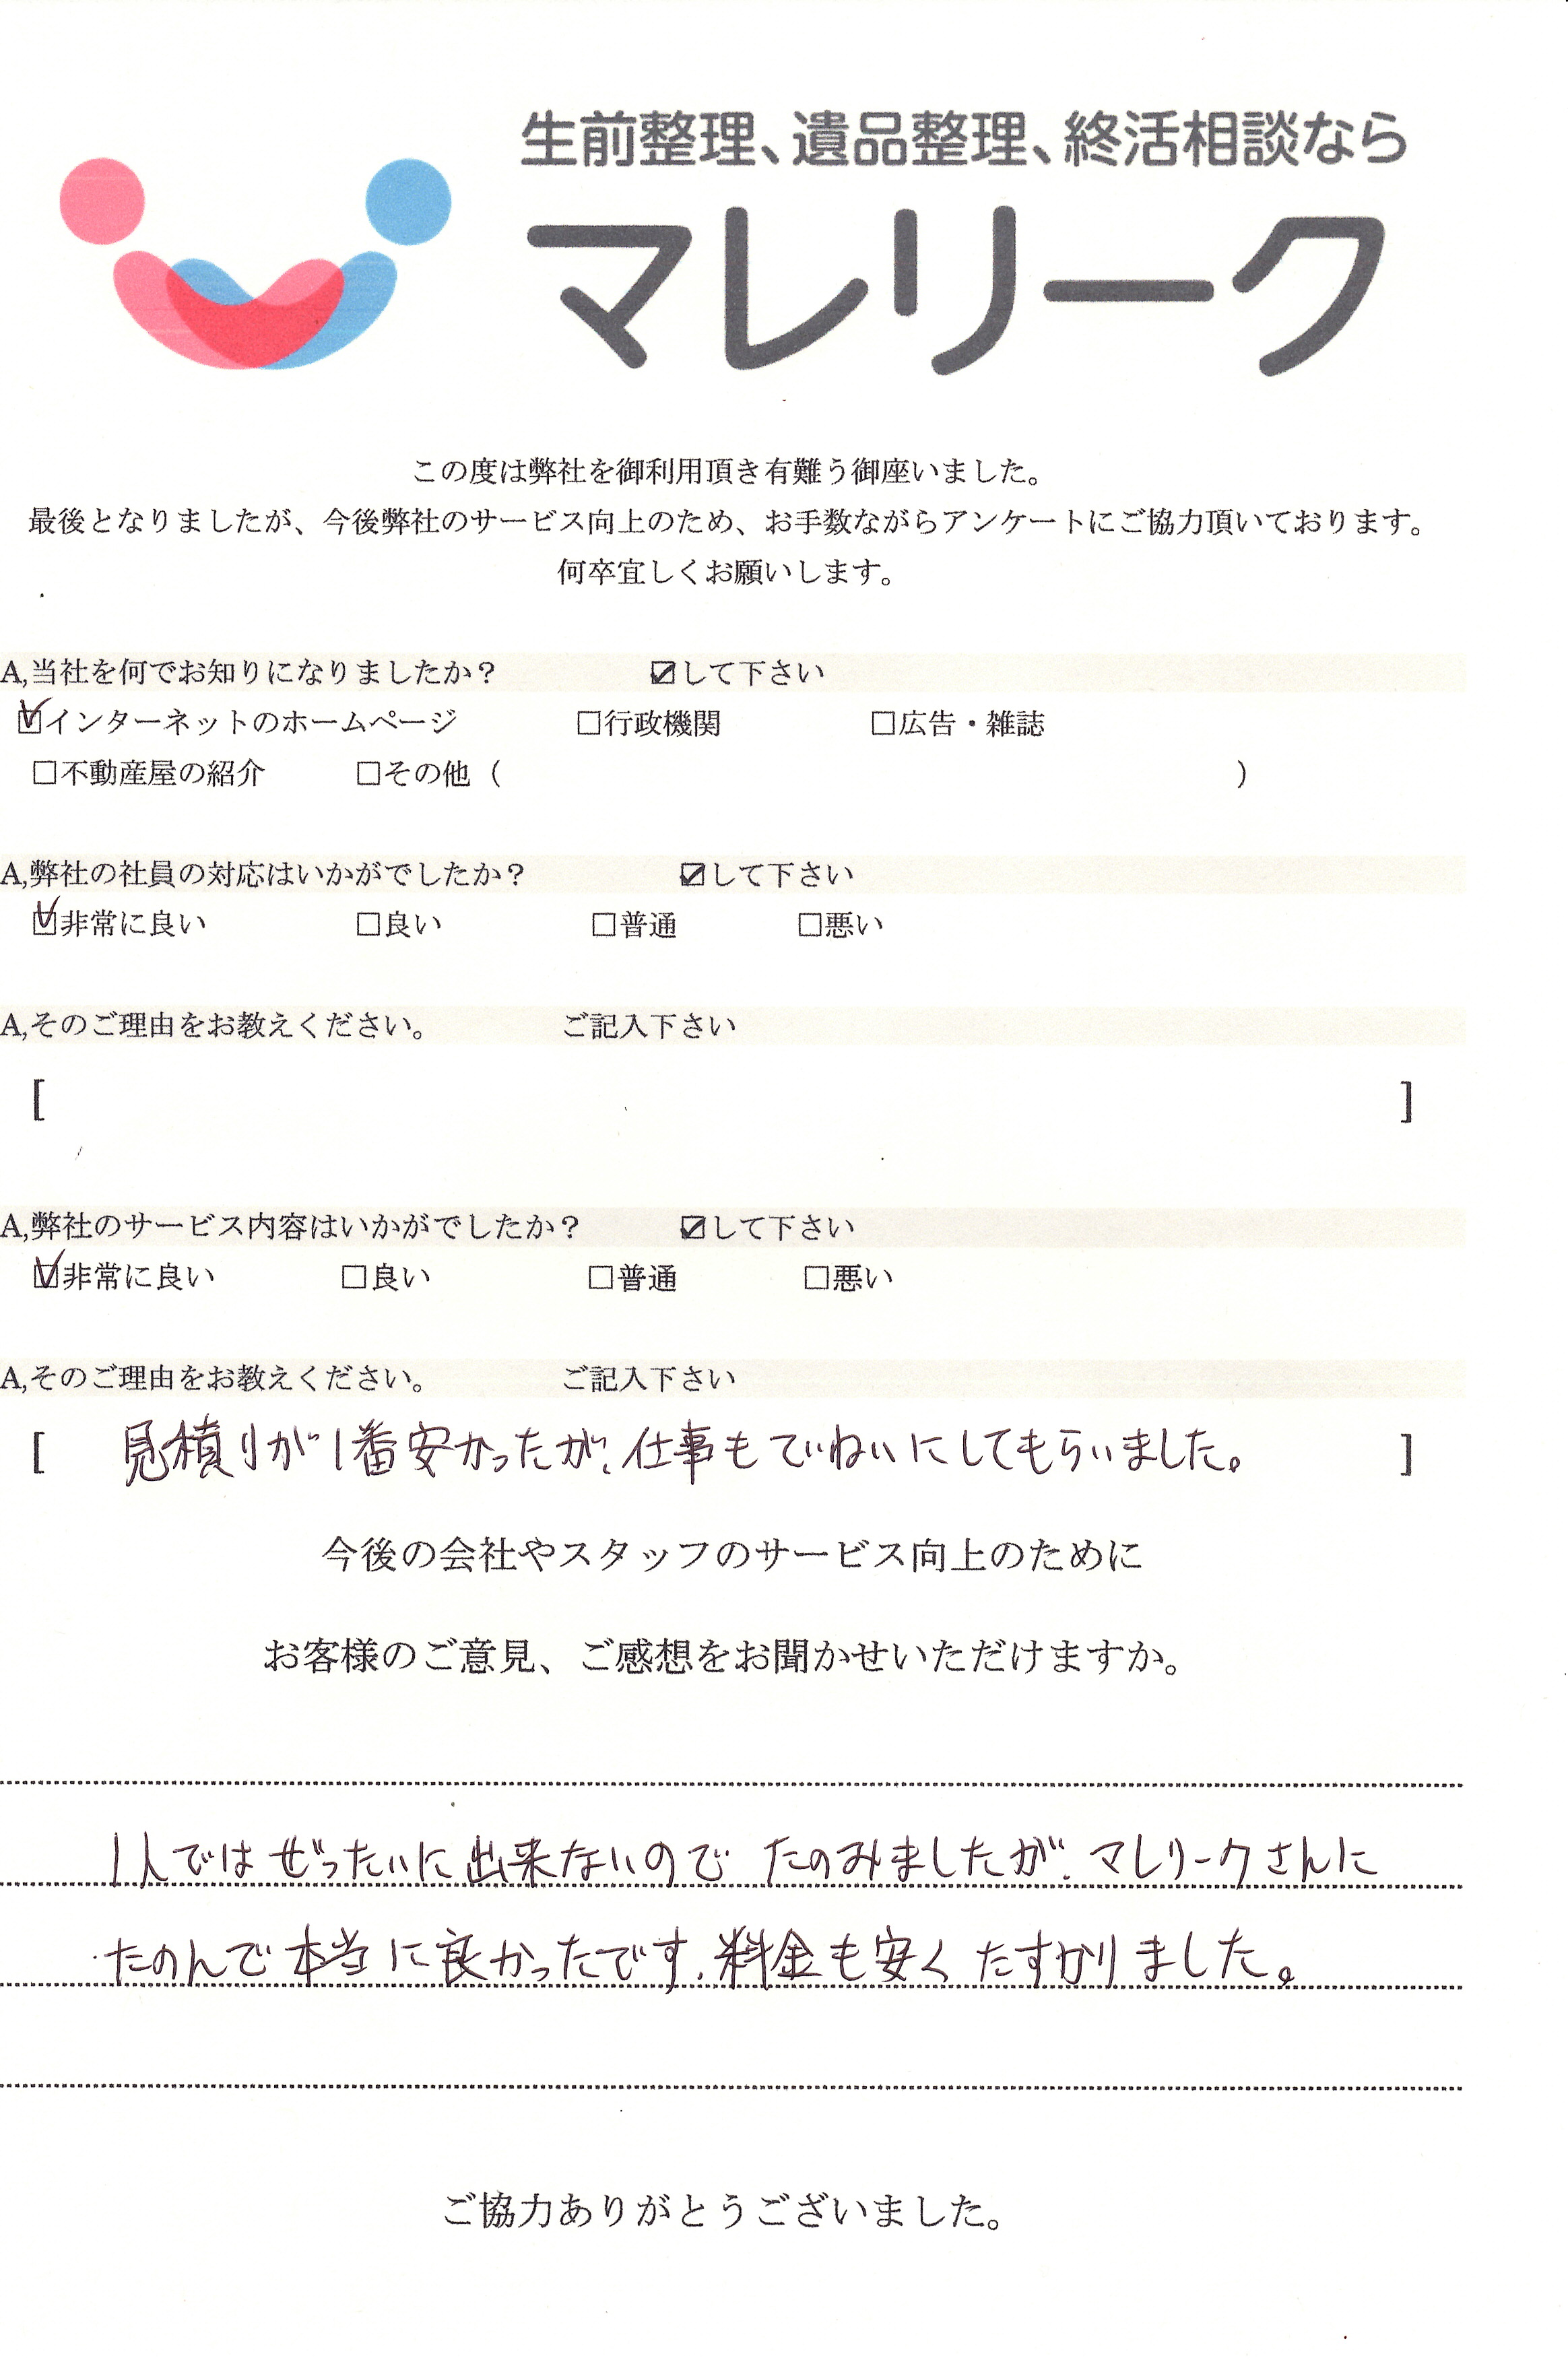 生前整理、遺品整理、終活相談なら
マレリーク
この度は弊社を御利用頂き有難う御座いました。
最後となりましたが、今後弊社のサービス向上のため、お手数ながらアンケートにご協力頂いております。
何卒宜しくお願いします。
A,当社を何でお知りになりましたか？ ☑して下さい
☑インターネットのホームページ □行政機関 □広告・雑誌
□不動産屋の紹介 □その他（ ）
A,弊社の社員の対応はいかがでしたか？ ☑して下さい
☑非常に良い □良い □普通 □悪い
A,そのご理由をお教えください。 ご記入下さい
[ ]
A,弊社のサービス内容はいかがでしたか？ ☑して下さい
☑非常に良い □良い □普通 □悪い
A,そのご理由をお教えください。 ご記入下さい
[ 見積りが1番安かったが、仕事もていねいにしてもらいました。 ]
今後の会社やスタッフのサービス向上のために
お客様のご意見、ご感想をお聞かせいただけますか。
1人ではぜったいに出来ないので たのみましたが、マレリークさんに
たのんで本当に良かったです、料金も安く たすかりました。
ご協力ありがとうございました。